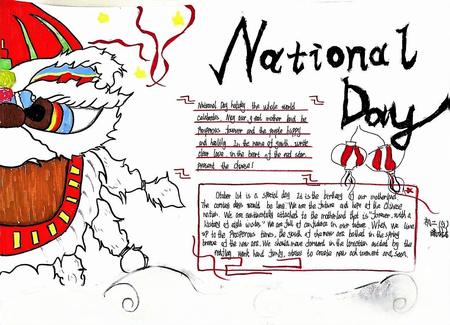 National
Day
National Day holiday, the whole world
celebrates. May our great mother land be
prosperous forever and the people happy
and healthy. In the name of youth, write
our love, in the heart of the red star,
present the chinese!
October 1st is a special day. It is the birthday of our motherland.
The coming days would be long. We are the future and hope of the Chinese
nation. We are sentimentally attached to the motherland that is "forever, with a
history of eight words." We are full of confidence in our future. When we come
up to the prosperous times, the youth of character are bathed in the spring
breeze of the new era. We should move forward in the direction guided by the
work hard, forge, strive to create new achievement and
初二